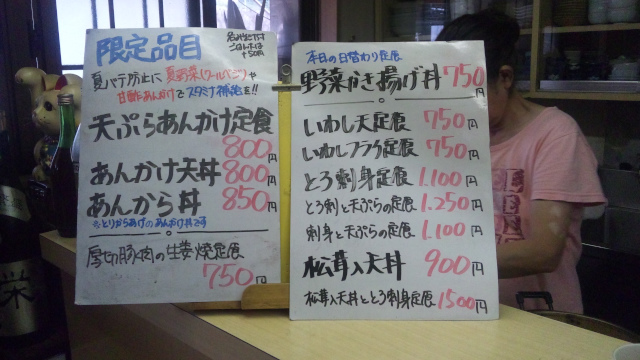 限定品目
ごはん大は
+50円
夏バテ防止に夏野菜(ゴーヤ)や
甘酢あんかけでスタミナ補給を!!
天ぷらあんかけ定食
800円
あんかけ天丼 800円
あんから丼 850円
※とりからあげのあんかけ丼です
厚切豚肉の生姜焼定食
750円
本日の日替わり定食
野菜かき揚げ丼 750円
いわし天定食 750円
いわしフライ定食 750円
とろ刺身定食 1.100円
とろ刺と天ぷらの定食 1.250円
刺身と天ぷらの定食 1.100円
松茸入天丼 900円
松茸入天丼ととろ刺身定食 1500円
栄